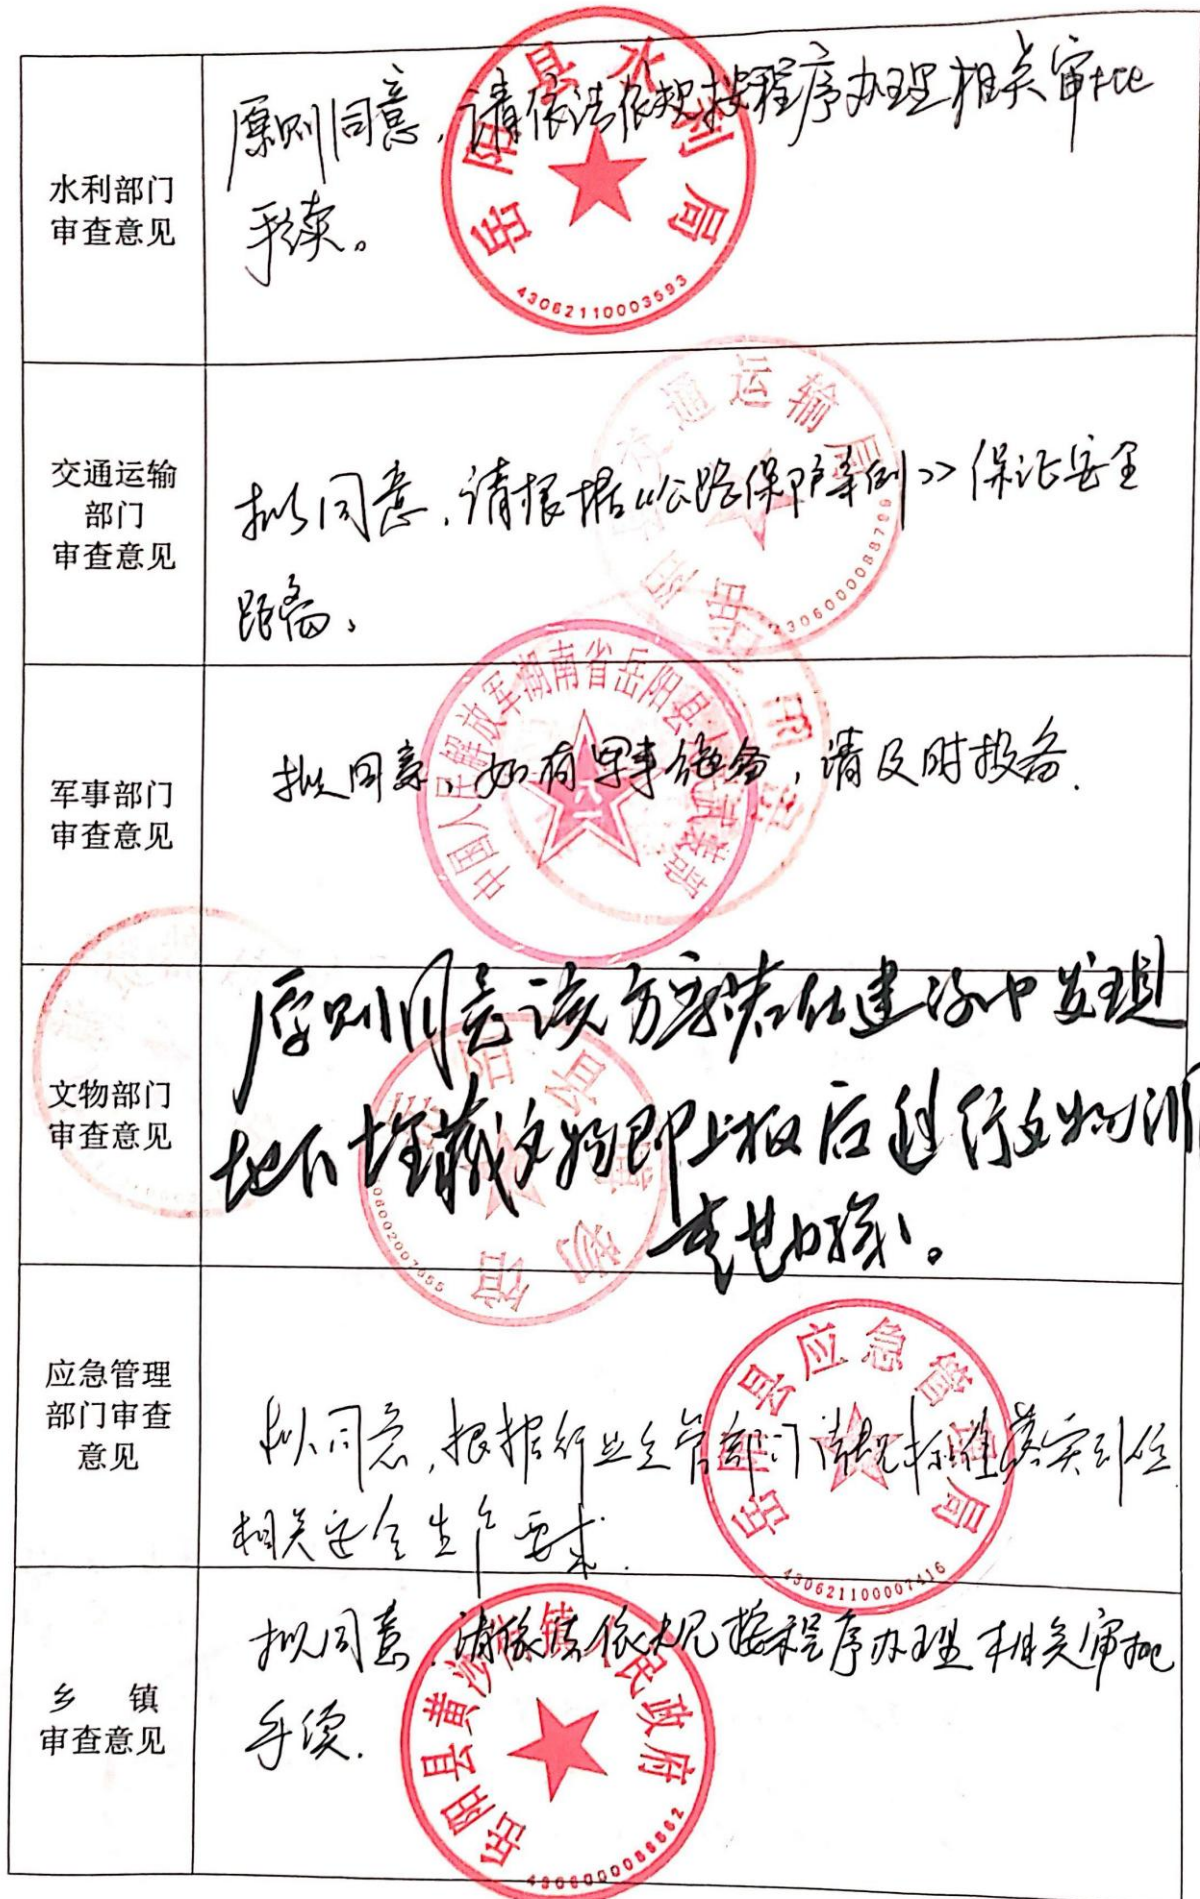 水利部门
审查意见
原则同意，请依法依规按程序办理相关审批
手续。
岳阳县水利局
43062110003593
交通运输
部门
审查意见
拟同意，请根据《公路保护条例》保证安全
距离。
交通运输局
军事部门
审查意见
拟同意，如有军事设备，请及时报备.
中国人民解放军湖南省岳阳县人民武装部
文物部门
审查意见
原则同意该方案若在建设中发现
地下埋藏文物即上报后进行文物
勘探。
岳阳县博物馆
应急管理
部门审查
意见
拟同意，根据行业主管部门法规标准落实到位
相关安全生产要求.
岳阳县应急管理局
430621100007416
乡 镇
审查意见
拟同意，请依法依规按程序办理相关审批
手续.
岳阳县黄沙街镇人民政府